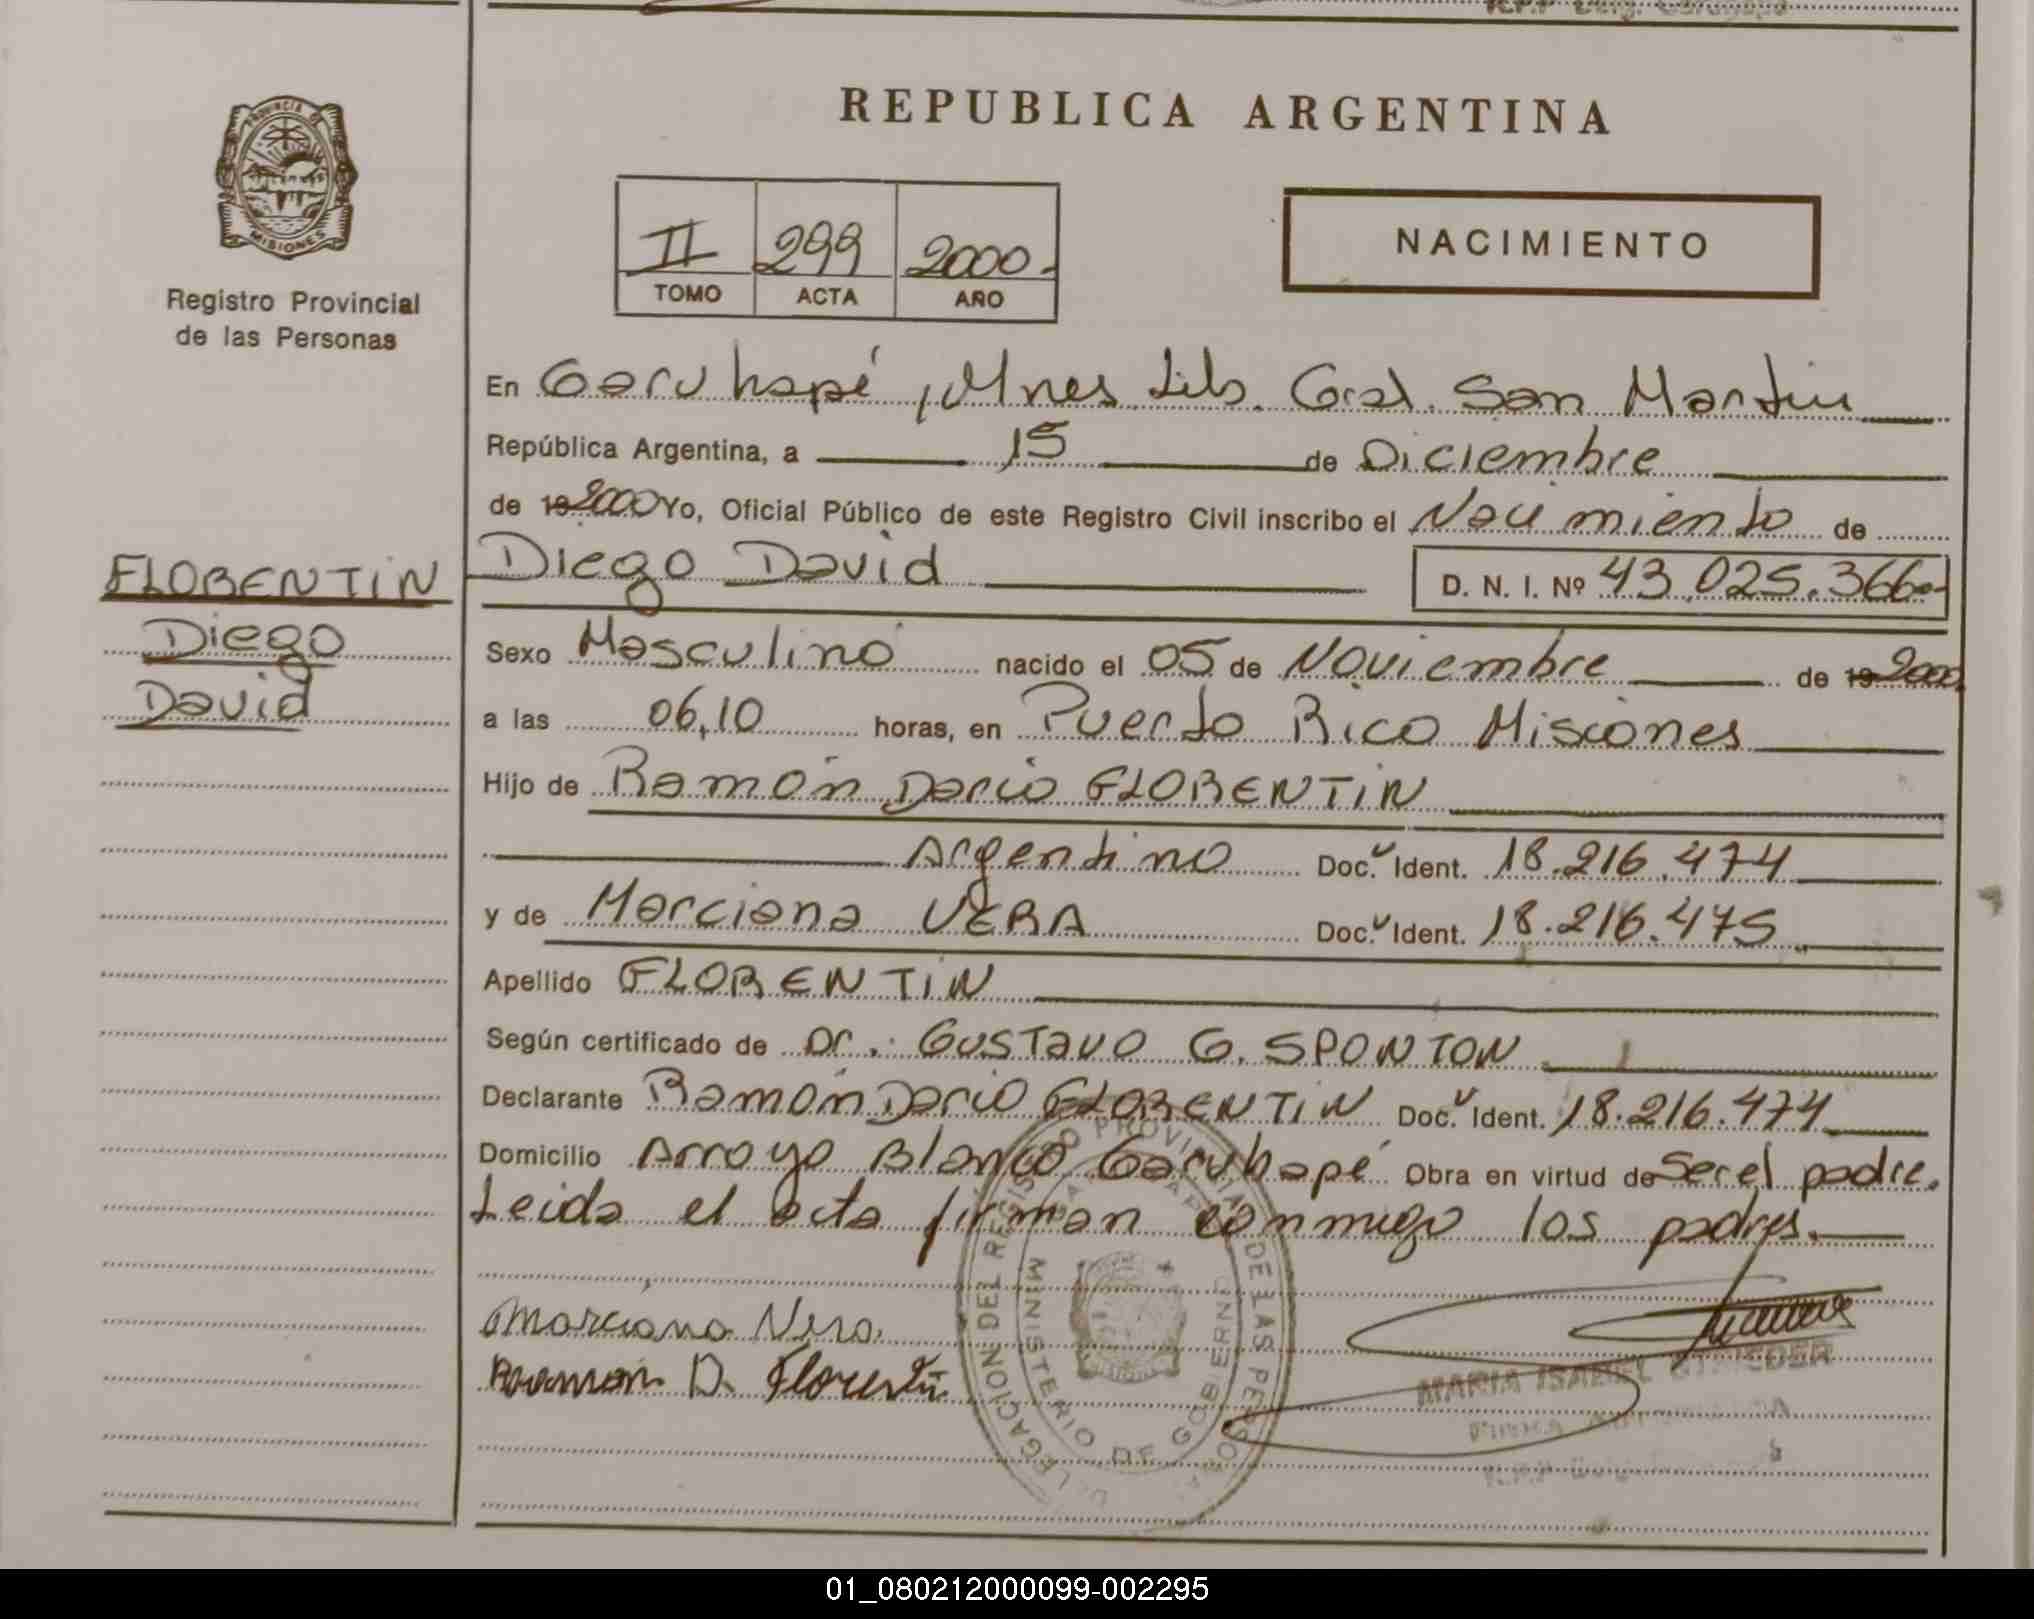 REPUBLICA ARGENTINA
PROVINCIA DE MISIONES
Registro Provincial
de las Personas
II 299 2000.
TOMO ACTA AÑO
NACIMIENTO
En Garuhapé, Mnes Lib. Gral. San Martin
República Argentina, a 15 de Diciembre
de 192000 Yo, Oficial Público de este Registro Civil inscribo el Nacimiento de
Diego David D. N. I. Nº 43.025.366.-
FLORENTIN
Diego
David
Sexo Masculino nacido el 05 de Noviembre de 192000
a las 06,10 horas, en Puerto Rico Misiones
Hijo de Ramón Dario FLORENTIN
Argentino Doc. Ident. 18.216.474
y de Marciana VERA Doc. Ident. 18.216.475
Apellido FLORENTIN
Según certificado de Dr.: GUSTAVO G. SPONTON
Declarante Ramón Dario FLORENTIN Doc. Ident. 18.216.474
Domicilio Arroyo Blanco Garuhapé Obra en virtud de Ser el padre.
Leida el acta firman conmigo los padres.
Marciana Vera
Ramon D. Florentin
DELEGACION DEL REGISTRO PROVINCIAL DE LAS PERSONAS
MINISTERIO DE GOBIERNO
MARIA ISABEL
01_080212000099-002295